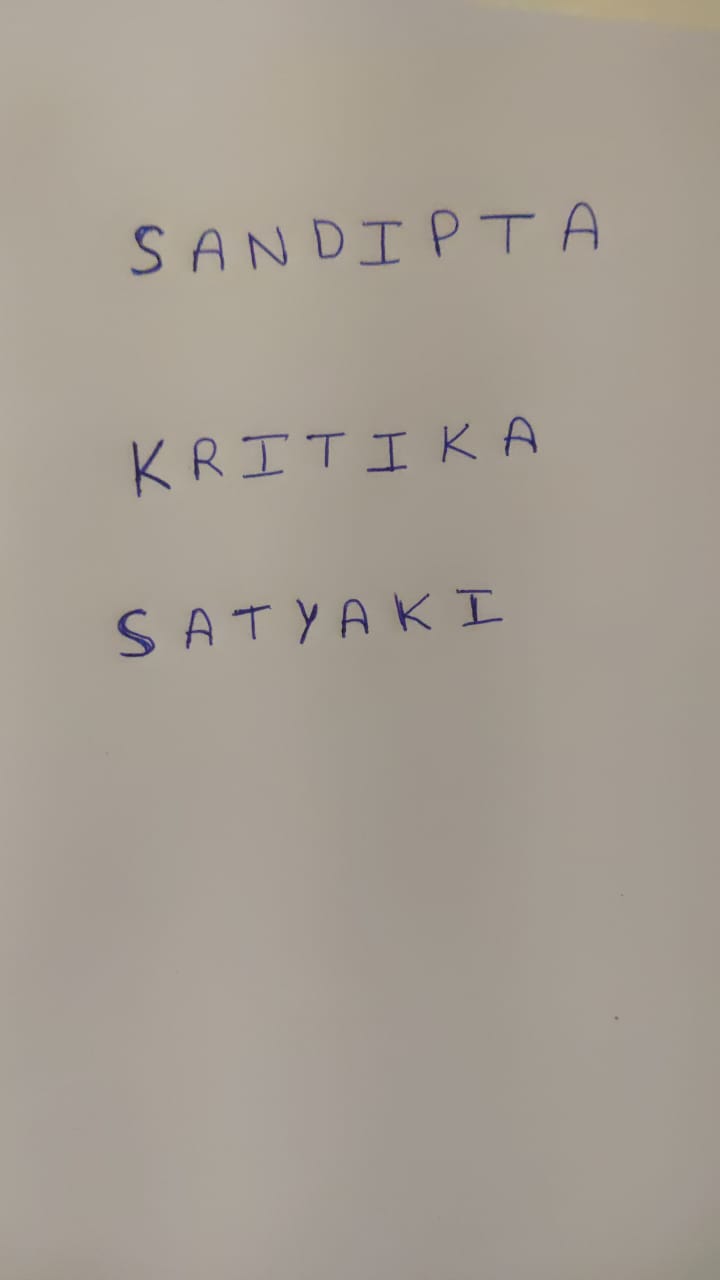 SANDIPTA
KRITIKA
SATYAKI